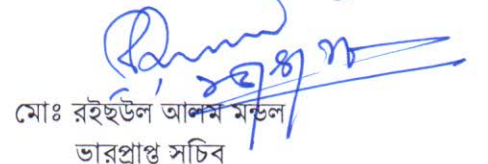 মোঃ রইছউল আলম মন্ডল
ভারপ্রাপ্ত সচিব